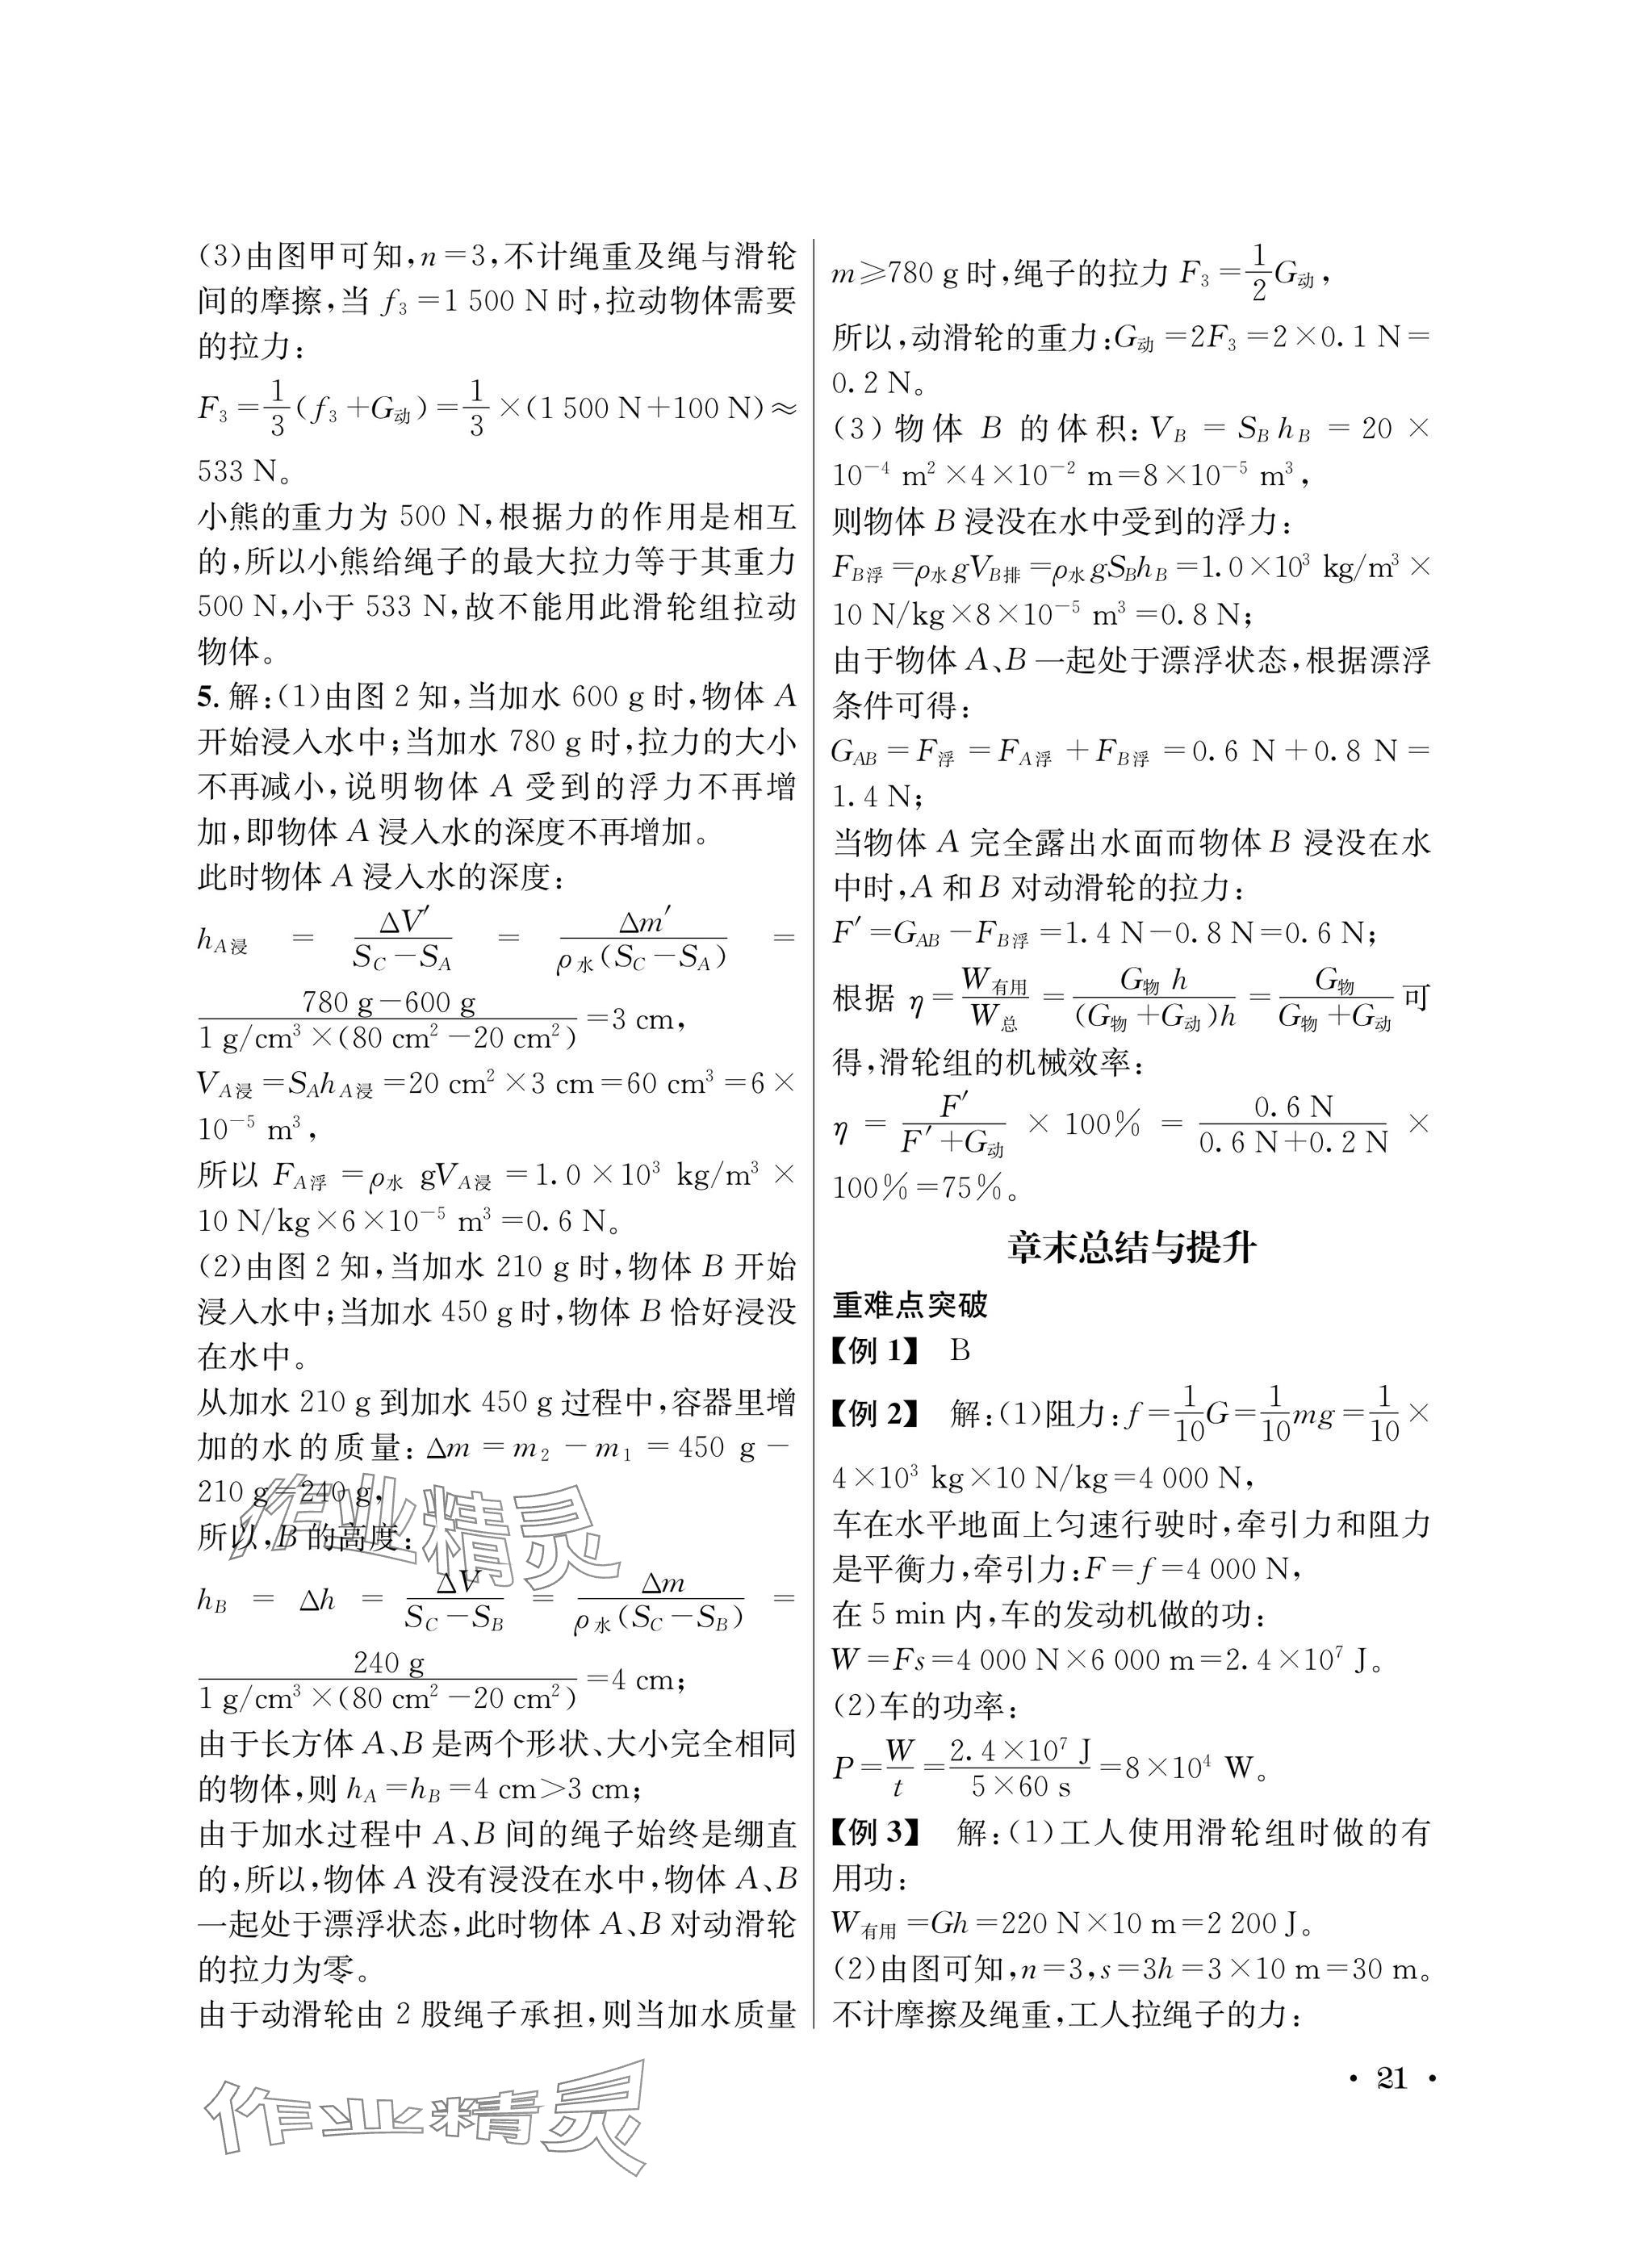 (3)由图甲可知,n=3,不计绳重及绳与滑轮
间的摩擦,当 f₃=1 500 N时,拉动物体需要
的拉力:
F₃=1/3(f₃+G动)=1/3×(1 500 N+100 N)≈
533 N。
小熊的重力为 500 N,根据力的作用是相互
的,所以小熊给绳子的最大拉力等于其重力
500 N,小于 533 N,故不能用此滑轮组拉动
物体。
5. 解:(1)由图 2 知,当加水 600 g时,物体 A
开始浸入水中;当加水 780 g时,拉力的大小
不再减小,说明物体 A 受到的浮力不再增
加,即物体 A 浸入水的深度不再增加。
此时物体 A 浸入水的深度:
h_A浸 = ΔV′/(S_C-S_A) = Δm′/(ρ水(S_C-S_A)) =
(780 g-600 g)/(1 g/cm³×(80 cm²-20 cm²))=3 cm,
V_A浸=S_A h_A浸=20 cm²×3 cm=60 cm³=6×
10⁻⁵ m³,
所以 F_A浮=ρ水 gV_A浸=1.0×10³ kg/m³×
10 N/kg×6×10⁻⁵ m³=0.6 N。
(2)由图 2 知,当加水 210 g时,物体 B 开始
浸入水中;当加水 450 g时,物体 B 恰好浸没
在水中。
从加水 210 g到加水 450 g过程中,容器里增
加的水的质量:Δm=m₂-m₁=450 g-
210 g=240 g,
所以,B 的高度:
h_B = Δh = ΔV/(S_C-S_B) = Δm/(ρ水(S_C-S_B)) =
240 g/(1 g/cm³×(80 cm²-20 cm²))=4 cm;
由于长方体 A、B 是两个形状、大小完全相同
的物体,则 h_A=h_B=4 cm>3 cm;
由于加水过程中 A、B 间的绳子始终是绷直
的,所以,物体 A 没有浸没在水中,物体 A、B
一起处于漂浮状态,此时物体 A、B 对动滑轮
的拉力为零。
由于动滑轮由 2 股绳子承担,则当加水质量
m≥780 g时,绳子的拉力 F₃=1/2G动,
所以,动滑轮的重力:G动=2F₃=2×0.1 N=
0.2 N。
(3)物体 B 的体积:V_B=S_B h_B=20×
10⁻⁴ m²×4×10⁻² m=8×10⁻⁵ m³,
则物体 B 浸没在水中受到的浮力:
F_B浮=ρ水gV_B排=ρ水gS_B h_B=1.0×10³ kg/m³×
10 N/kg×8×10⁻⁵ m³=0.8 N;
由于物体 A、B 一起处于漂浮状态,根据漂浮
条件可得:
G_AB=F浮=F_A浮+F_B浮=0.6 N+0.8 N=
1.4 N;
当物体 A 完全露出水面而物体 B 浸没在水
中时,A 和 B 对动滑轮的拉力:
F′=G_AB-F_B浮=1.4 N-0.8 N=0.6 N;
根据 η=W有用/W总=G物 h/((G物+G动)h)=G物/(G物+G动)可
得,滑轮组的机械效率:
η = F′/(F′+G动) × 100% = 0.6 N/(0.6 N+0.2 N) ×
100%=75%。
章末总结与提升
重难点突破
【例 1】 B
【例 2】 解:(1)阻力:f=1/10G=1/10mg=1/10×
4×10³ kg×10 N/kg=4 000 N,
车在水平地面上匀速行驶时,牵引力和阻力
是平衡力,牵引力:F=f=4 000 N,
在 5 min 内,车的发动机做的功:
W=Fs=4 000 N×6 000 m=2.4×10⁷ J。
(2)车的功率:
P=W/t=2.4×10⁷ J/(5×60 s)=8×10⁴ W。
【例 3】 解:(1)工人使用滑轮组时做的有
用功:
W有用=Gh=220 N×10 m=2 200 J。
(2)由图可知,n=3,s=3h=3×10 m=30 m。
不计摩擦及绳重,工人拉绳子的力:
· 21 ·
作业精灵
作业精灵